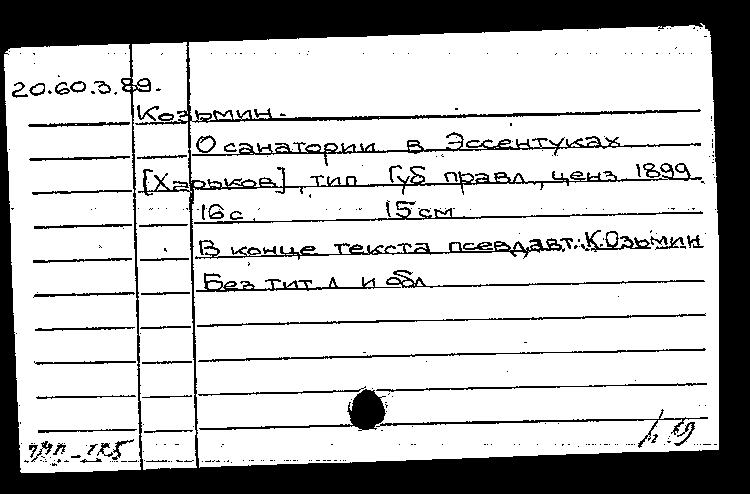 20.60.3.89.
Козьмин.
О санатории в Эссентуках
[Харьков], тип Губ правл, ценз 1899
16с. 15см
В конце текста псевд.авт.: К.Озьмин
Без тит л и обл